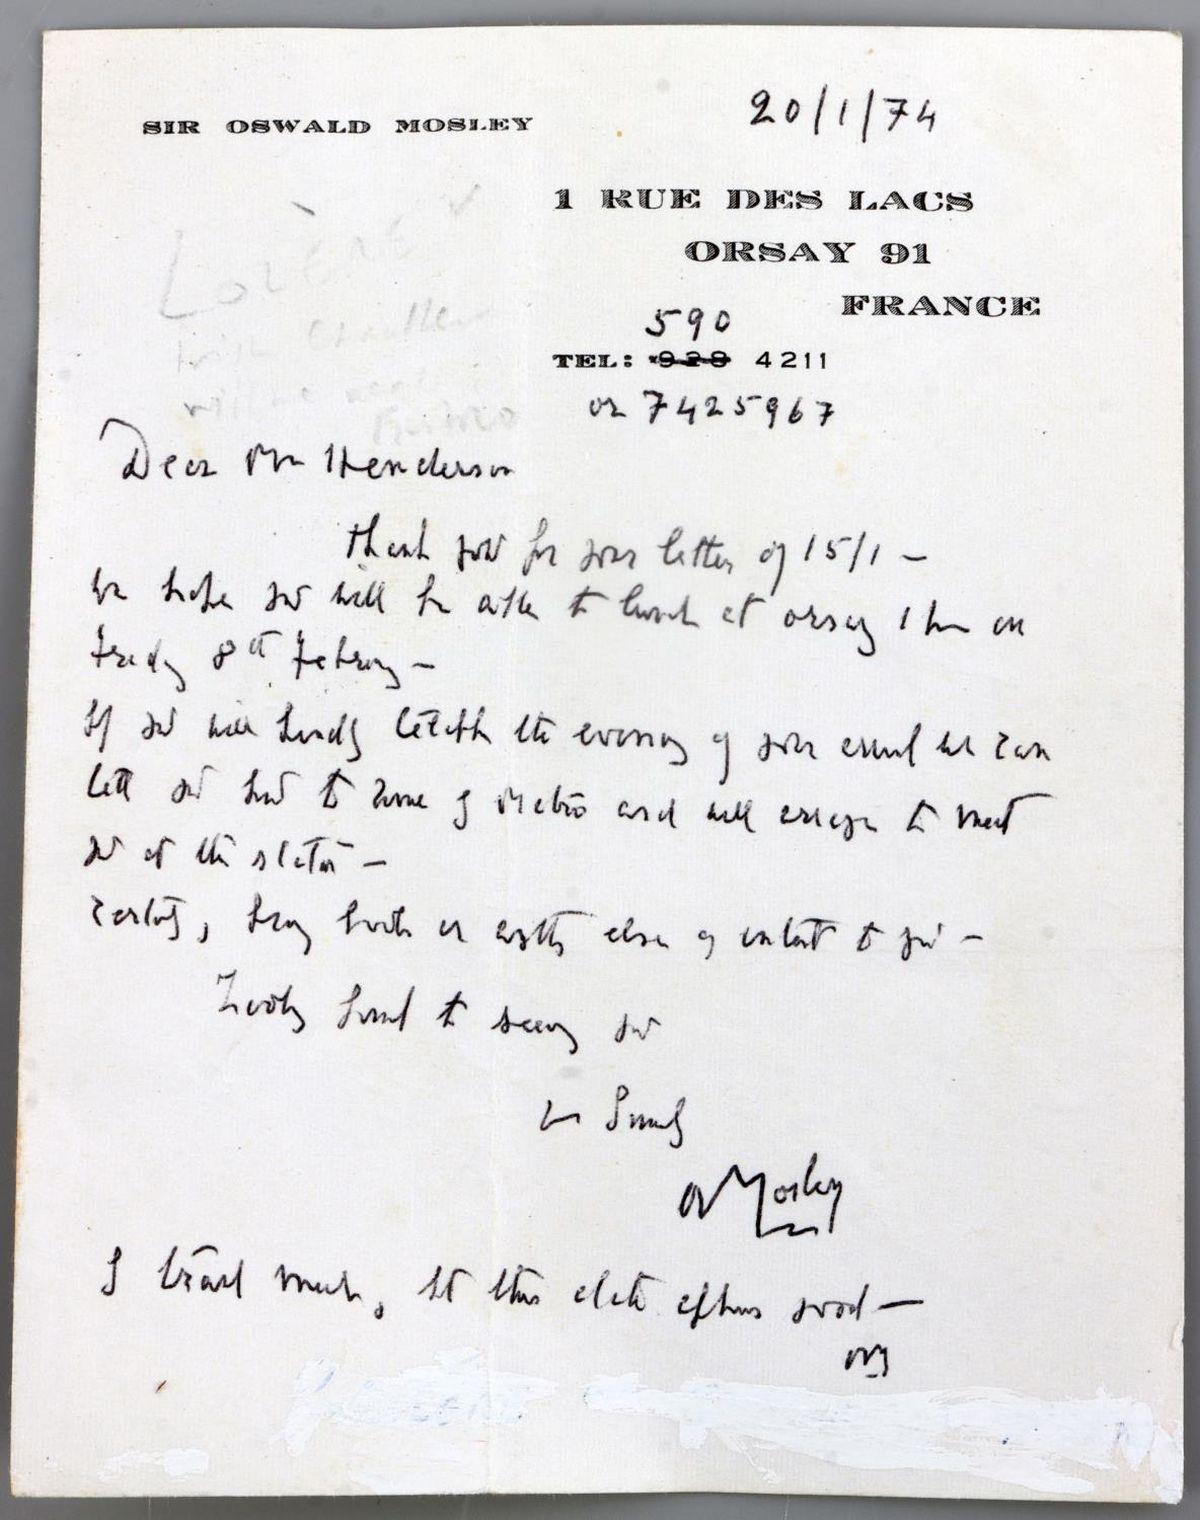 20/1/74
SIR OSWALD MOSLEY
1 RUE DES LACS
ORSAY 91
FRANCE
590
TEL: 928 4211
or 7425967
LOZÈRE
Dear Mr Henderson
Thank you for your letter of 15/1 –
We hope you will be able to lunch at Orsay 1 on
Friday 8th February –
If you will kindly the evening of your we can
tell you how to come by Metro and will arrange to meet
you at the station –
Certainly, bring books or anything else of interest to you –
Looking forward to seeing you
Sincerely
OMosley
I travel much, but this date appears good –
OM